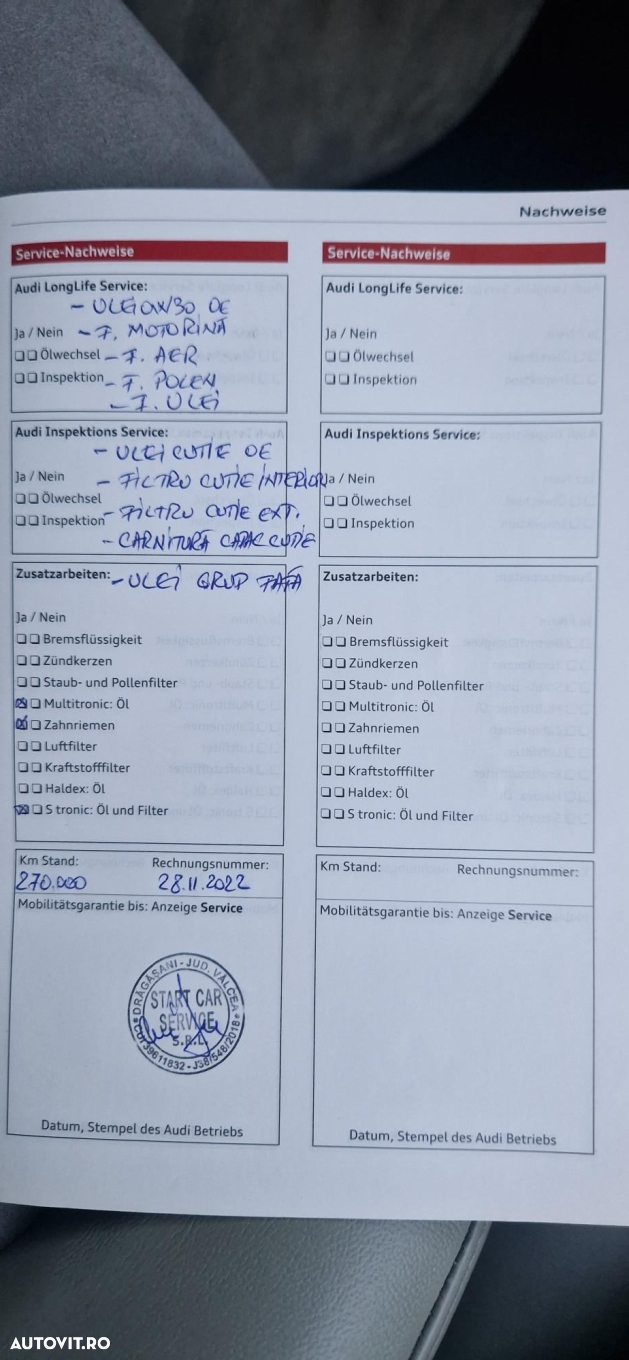 Nachweise
Service-Nachweise
Audi LongLife Service:
- ULEI 0W30 OE
Ja / Nein - F. MOTORINĂ
Ölwechsel - F. AER
Inspektion - F. POLEN
- F. ULEI
Audi Inspektions Service:
- ULEI CUTIE OE
Ja / Nein - FILTRU CUTIE INTERIOR
Ölwechsel
- FILTRU CUTIE EXT.
Inspektion
- GARNITURĂ CAPAC CUTIE
Zusatzarbeiten: - ULEI GRUP FAȚĂ
Ja / Nein
Bremsflüssigkeit
Zündkerzen
Staub- und Pollenfilter
Multitronic: Öl
Zahnriemen
Luftfilter
Kraftstofffilter
Haldex: Öl
S tronic: Öl und Filter
Km Stand: Rechnungsnummer:
270.000 28.11.2022
Mobilitätsgarantie bis: Anzeige Service
DRĂGĂȘANI - JUD. VÂLCEA
START CAR
SERVICE
S.R.L.
39611832 - J38/548/2018
Datum, Stempel des Audi Betriebs
Service-Nachweise
Audi LongLife Service:
Ja / Nein
Ölwechsel
Inspektion
Audi Inspektions Service:
Ja / Nein
Ölwechsel
Inspektion
Zusatzarbeiten:
Ja / Nein
Bremsflüssigkeit
Zündkerzen
Staub- und Pollenfilter
Multitronic: Öl
Zahnriemen
Luftfilter
Kraftstofffilter
Haldex: Öl
S tronic: Öl und Filter
Km Stand: Rechnungsnummer:
Mobilitätsgarantie bis: Anzeige Service
Datum, Stempel des Audi Betriebs
AUTOVIT.RO